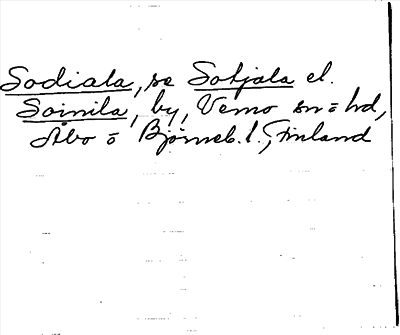 Sodiala, se Sotjala el.
Soinila, by, Vemo sn o hd,
Åbo o Björneb. l., Finland